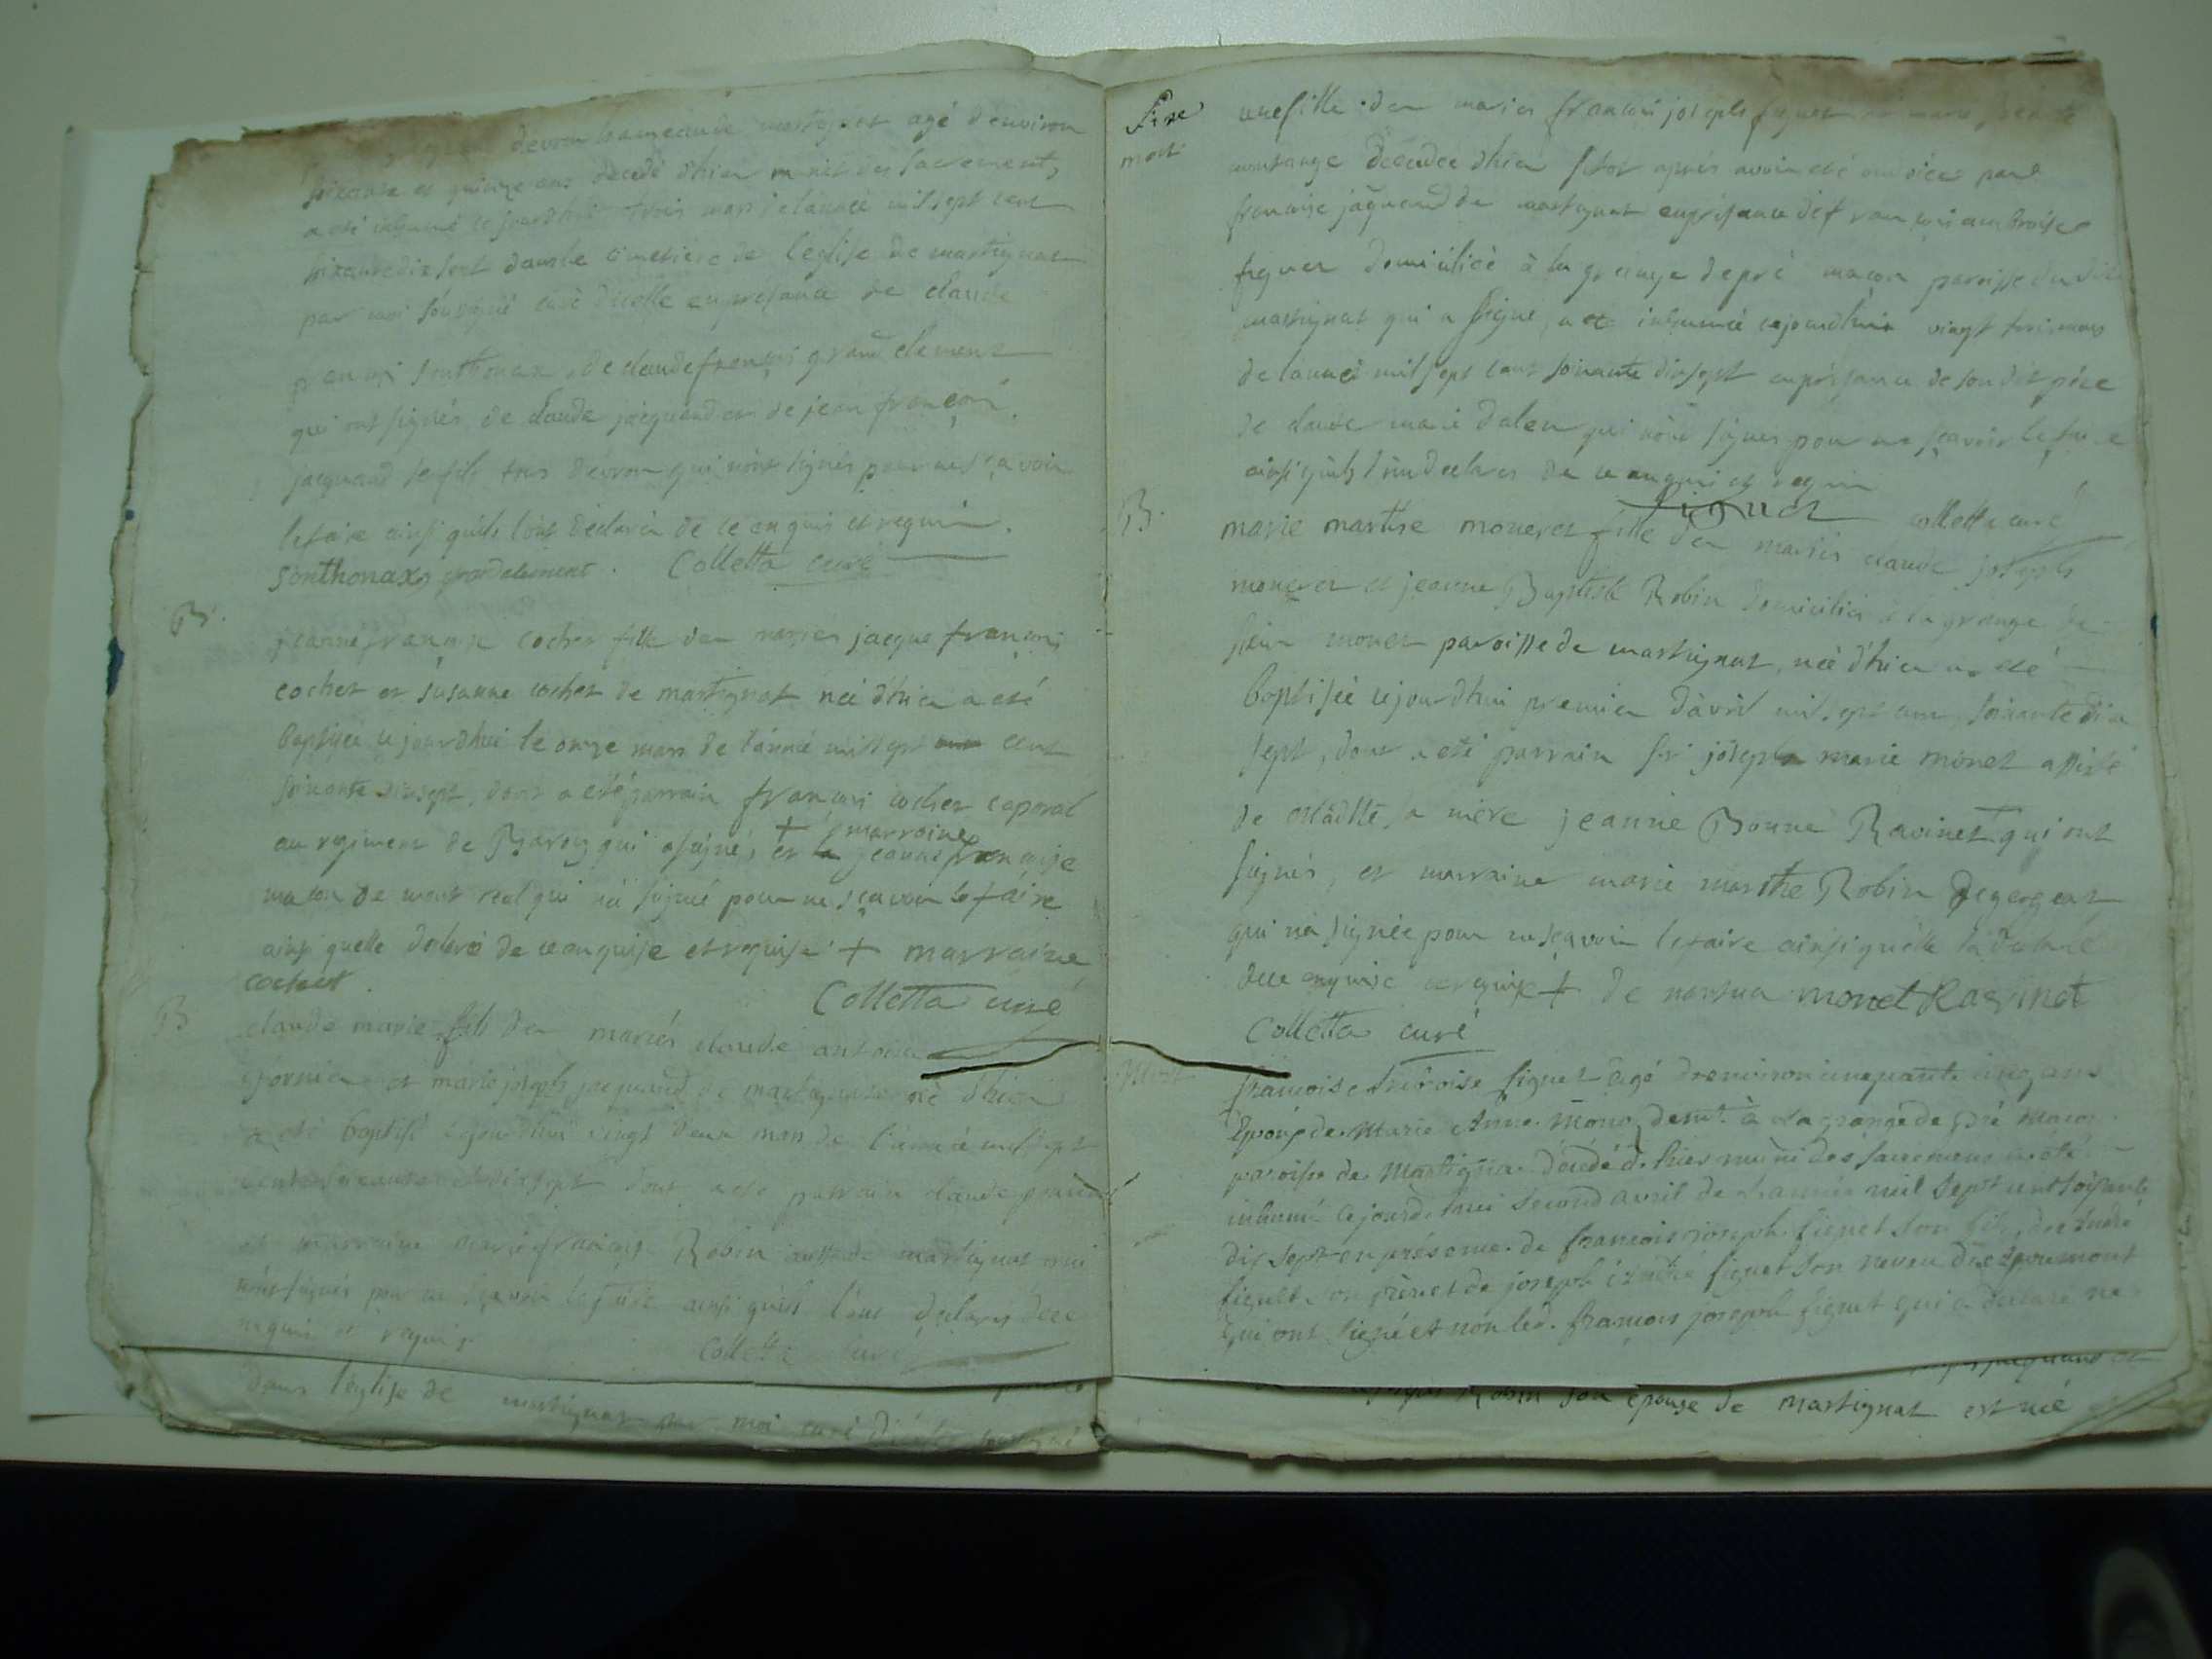 devron hameau de martignat agé d'environ
soixante et quinze ans decedé d'hier munit des sacrement,
a eté inhumé ce jourdhui trois mars de l'année mil sept cent
soixante dix sept dans le cimetiere de l'eglise de martignat
par moi soussigné curé d'icelle en presance de claude
francoi sonthonax, de claude françoi grand clement
qui ont signés de claude jacquand et de jean françoi
jacquand se fils tous devron qui n'ont signés pour ne sçavoir
le faire ainsi quils l'ont déclarés de ce enquis et requis.
Sonthonax grandclement. Colletta curé
B.
jeanne françoise cochet fille des mariés jacque françois
cochet et susanne cochet de martignat neé d'hier a eté
baptisée ce jourdhui le onze mars de l'année mil sept cent
soixante dixsept, dont a eté parrain françois cochet caporal
au regiment de qui a signé, et + marraine jeanne françoise
macon de mont real qui n'a signé pour ne sçavoir le faire
ainsi quelle declaré de ce enquise et requise + marraine
cochet.
Colletta curé
B
claude marie fils des mariés claude antoine
et marie joseph jacquand de martignat né d'hier
a eté baptisé cejourdhui vingt deux mars de l'année mil sept
cent soixante et dixsept dont a eté parrain claude
et marraine marie françoise Robin de martignat qui
n'ont signés pour ne sçavoir le faire ainsi quils l'ont declarés de ce
enquis et requis.
Colletta curé
dans l'eglise de martignat par moi curé d'icelle soussigné
mort
une fille des mariés francois joseph figuet
decedée d'hier sitot aprés avoir eté par
françoise jaquand de martignat en presance de francois ambroise
figuet domicilié à la grange de pré macon paroisse du dit
martignat qui a signé, a eté inhumée cejourdhui vingt trois mars
de l'année mil sept cent soixante dixsept en présance de son dit pére
de claude marie qui n'ont signés pour ne sçavoir le faire
ainsi quils l'on declarés de ce enquis et requis
figuet colletta curé
B.
marie marthe moneret fille des mariés claude joseph
moneret et jeanne Baptiste Robin domiciliés à la grange de
monet paroisse de martignat, neé d'hier a eté
baptisée cejourdhui premier d'avril mil sept cent soixante dix
sept, dont a eté parrain sr joseph marie monet assisté
de sa mére jeanne Bonne Ravinet qui ont
signés, et marraine marie marthe Robin
qui n'a signée pour ne sçavoir le faire ainsi quelle l'a declaré
de ce enquise requise + de nantua monet Ravinet
Colletta curé
Mort
francois ambroise figuet agé d'environ cinquante cinq ans
Epoux de Marie Anne demt. à La grange de pré Macon
paroisse de Martignat décédé d'hier muni des sacremens a été
inhumé cejourd'hui second avril de L'année mil sept cent soixante
dix sept en présence de francois joseph figuet son fils, d'andré
figuet son frère et de joseph andré figuet son neveu
qui ont signé et non led. françois joseph figuet qui a declaré ne
Robin son epouse de martignat est née